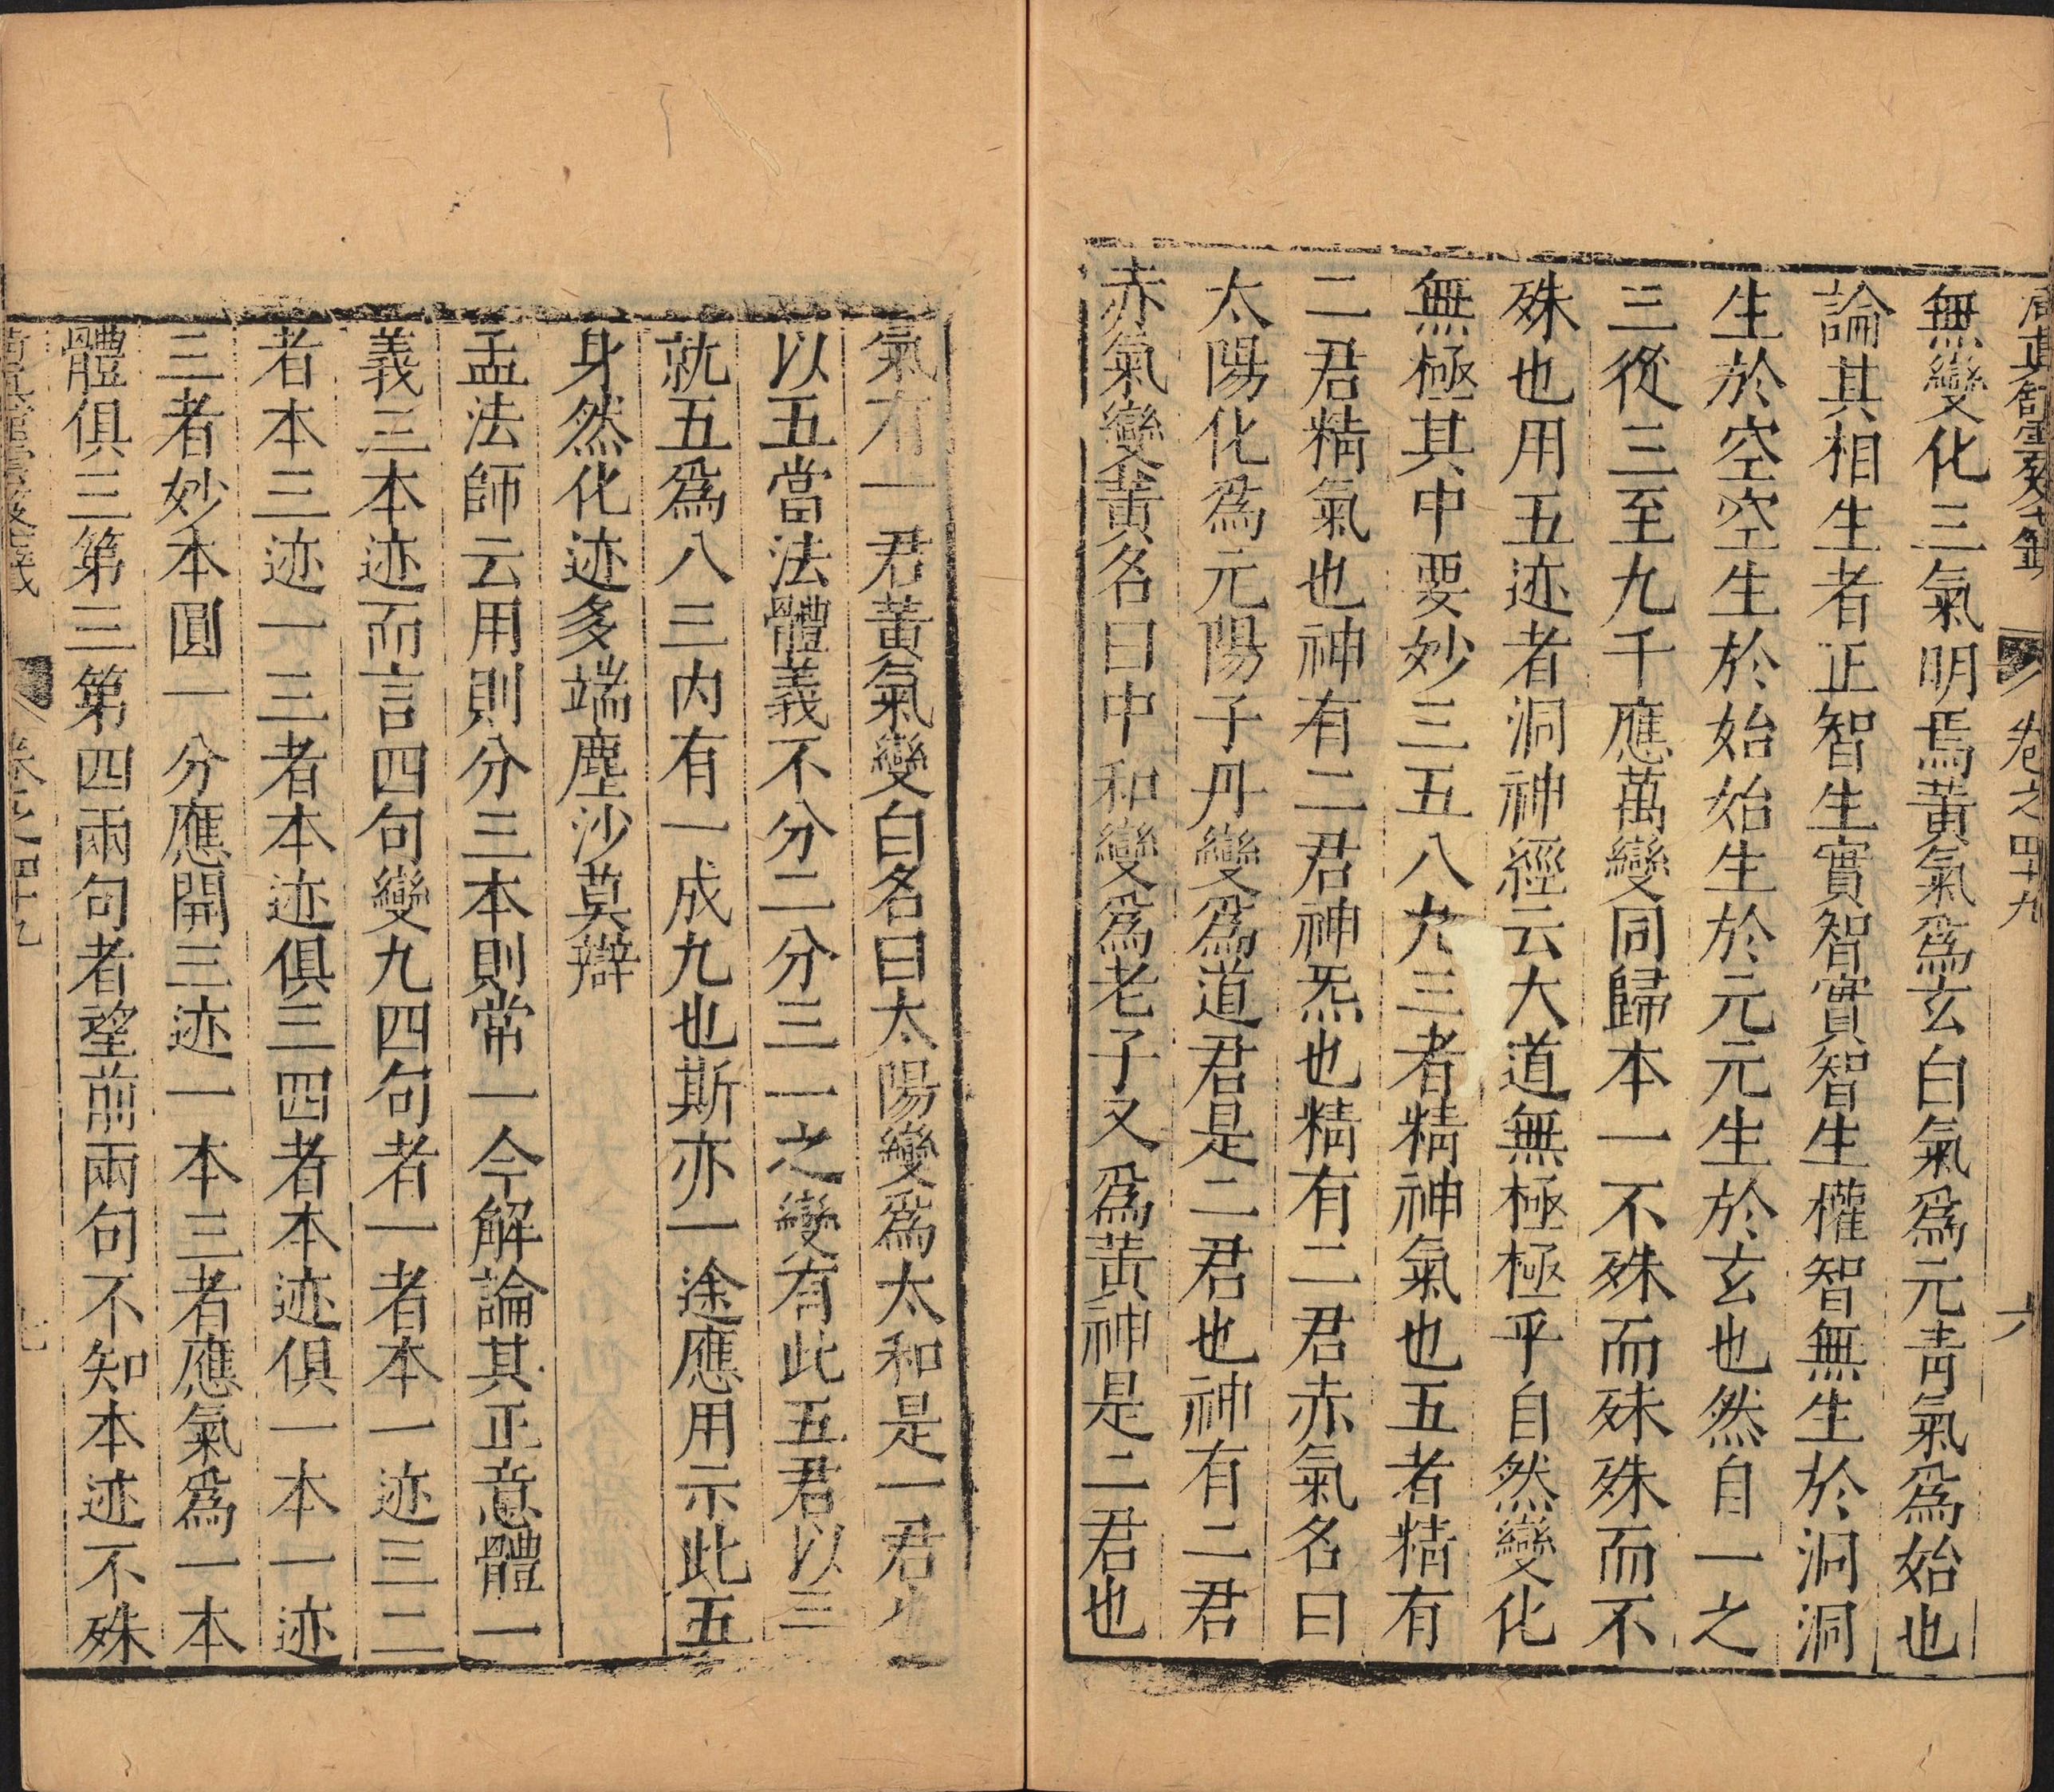 卷之四十九 六
無變化三氣明焉黃氣爲玄白氣爲元青氣爲始也
論其相生者正智生實智實智生權智無生於洞洞
生於空空生於始始生於元元生於玄也然自一之
三從三至九千應萬變同歸本一不殊而殊殊而不
殊也用五迹者洞神經云大道無極極乎自然變化
無極其中要妙三五八九三者精神氣也五者精有
二君精氣也神有二君神炁也精有二君赤氣名曰
太陽化爲元陽子丹變爲道君是二君也神有二君
赤氣變黃名曰中和變爲老子又爲黃神是二君也
氣有一君黃氣變白名曰太陽變爲太和是一君也
以五當法體義不分二分三一之變有此五君以三
就五爲八三内有一成九也斯亦一途應用示此五
身然化迹多端塵沙莫辯
孟法師云用則分三本則常一今解論其正意體一
義三本迹而言四句變九四句者一者本一迹三二
者本三迹一三者本迹俱三四者本迹俱一本一迹
三者妙本圓一分應開三迹一本三者應氣爲一本
體俱三第三第四兩句者望前兩句不知本迹不殊
卷之四十九 七